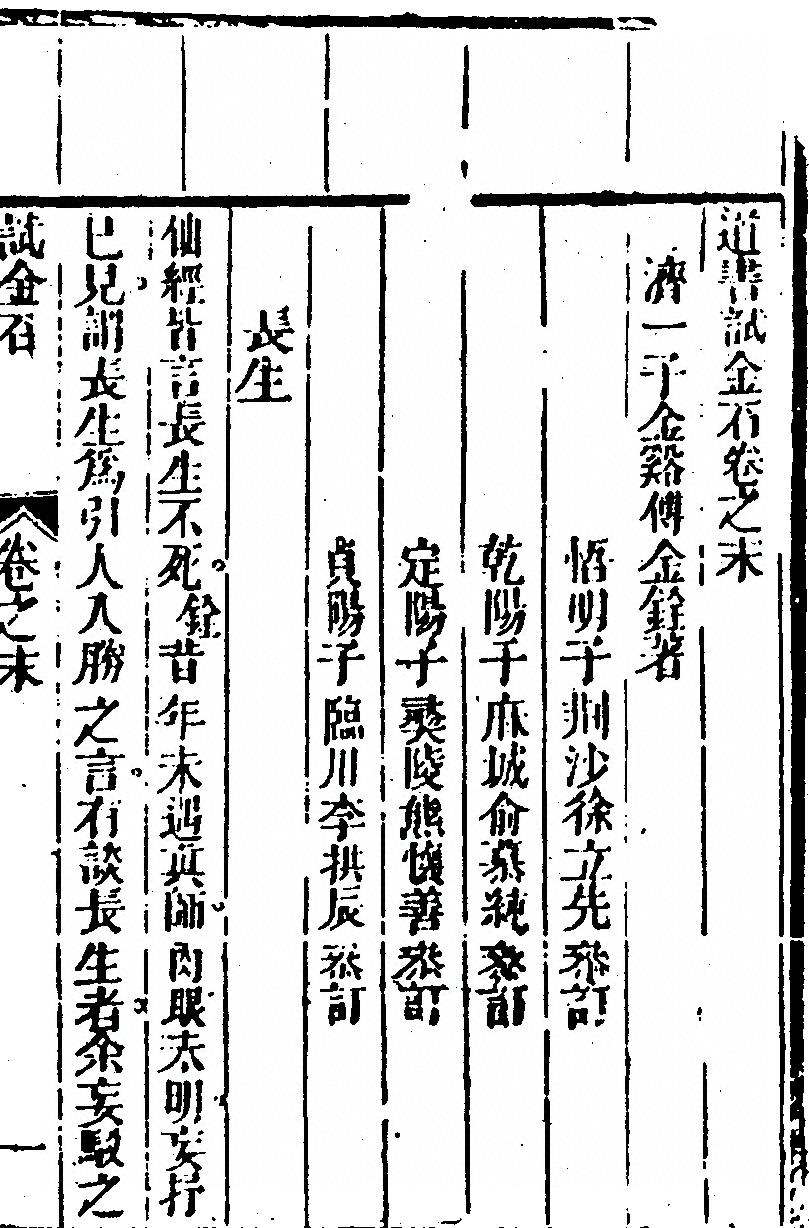 道書試金石卷之末
濟一子金谿傅金銓著
悟明子荆沙徐立先叅訂
乾陽子麻城俞慕純叅訂
定陽子夔陵熊懷善叅訂
貞陽子臨川李拱辰叅訂
長生
仙經皆言長生不死銓昔年未遇真師肉眼未明妄抒
己見謂長生爲引人入勝之言有談長生者余妄駁之
試金石
卷之末
一